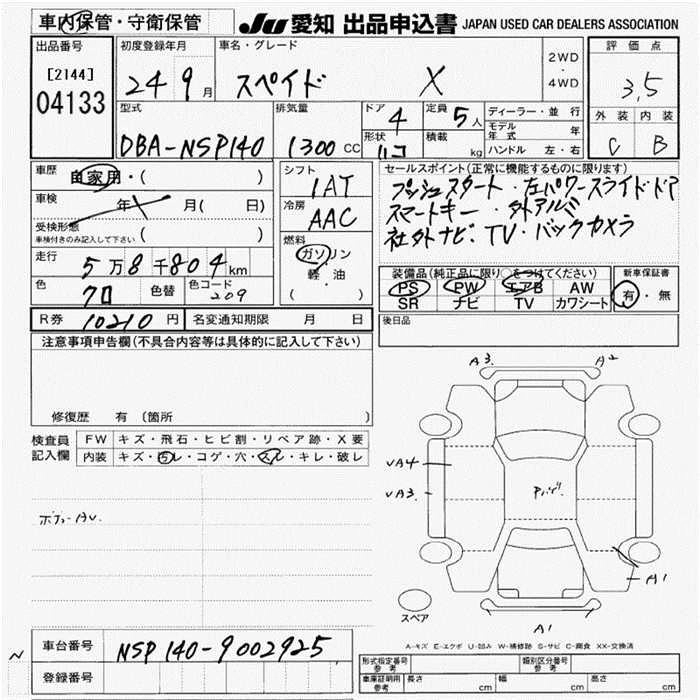 車内保管・守衛保管
JU愛知 出品申込書 JAPAN USED CAR DEALERS ASSOCIATION
出品番号
[2144]
04133
初度登録年月
24 9月
車名・グレード
スペイド X
2WD
・
4WD
評価点
3,5
外装 内装
C B
型式
DBA-NSP140
排気量
1300CC
ドア 4
形状 ハコ
定員 5人
積載 kg
ディーラー・並行
モデル年式 年
ハンドル 左・右
車歴
自家用・( )
車検
年 月( 日)
受検形態
車検付きのみ記入して下さい ( )
走行
5万8千804km
色
クロ
色替
色コード
209
シフト
1AT
冷房
AAC
燃料
ガソリン
軽・油
( )
セールスポイント(正常に機能するものに限ります)
プッシュスタート・左パワースライドドア
スマートキー・外アルミ
社外ナビ・TV・バックカメラ
装備品(純正品に限り○をつけてください)
PS PW エアB AW
SR ナビ TV カワシート
新車保証書
有・無
R券 10210円 名変通知期限 月 日
後日品
注意事項申告欄(不具合内容等は具体的に記入して下さい)
修復歴 有 (箇所 )
検査員記入欄
FW キズ・飛石・ヒビ割・リペア跡・X要
内装 キズ・汚レ・コゲ・穴・スレ・キレ・破レ
ボデーAU.
A3. A2
UA4
UA3.
A1
A1
スペア
A-キズ E-エクボ U-凹み W-補修跡 S-サビ C-腐食 XX-交換済
N
車台番号 NSP140-9002925
登録番号
形式指定番号 参考
類別区分番号 参考
車庫証明用 参考 長さ cm 幅 cm 高さ cm